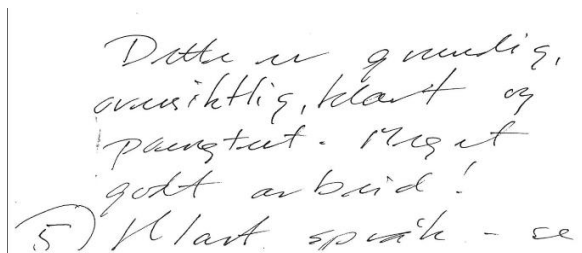 Dette er grundig,
oversiktlig, klart og
poengtert. Meget
godt arbeid!
5) Klart språk - se